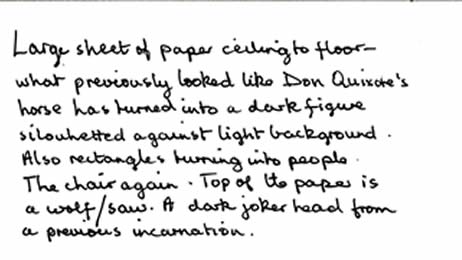 Large sheet of paper ceiling to floor-
what previously looked like Don Quixote's
horse has turned into a dark figure
silouhetted against light background.
Also rectangles turning into people.
The chair again. Top of the paper is
a wolf/saw. A dark joker head from
a previous incarnation.